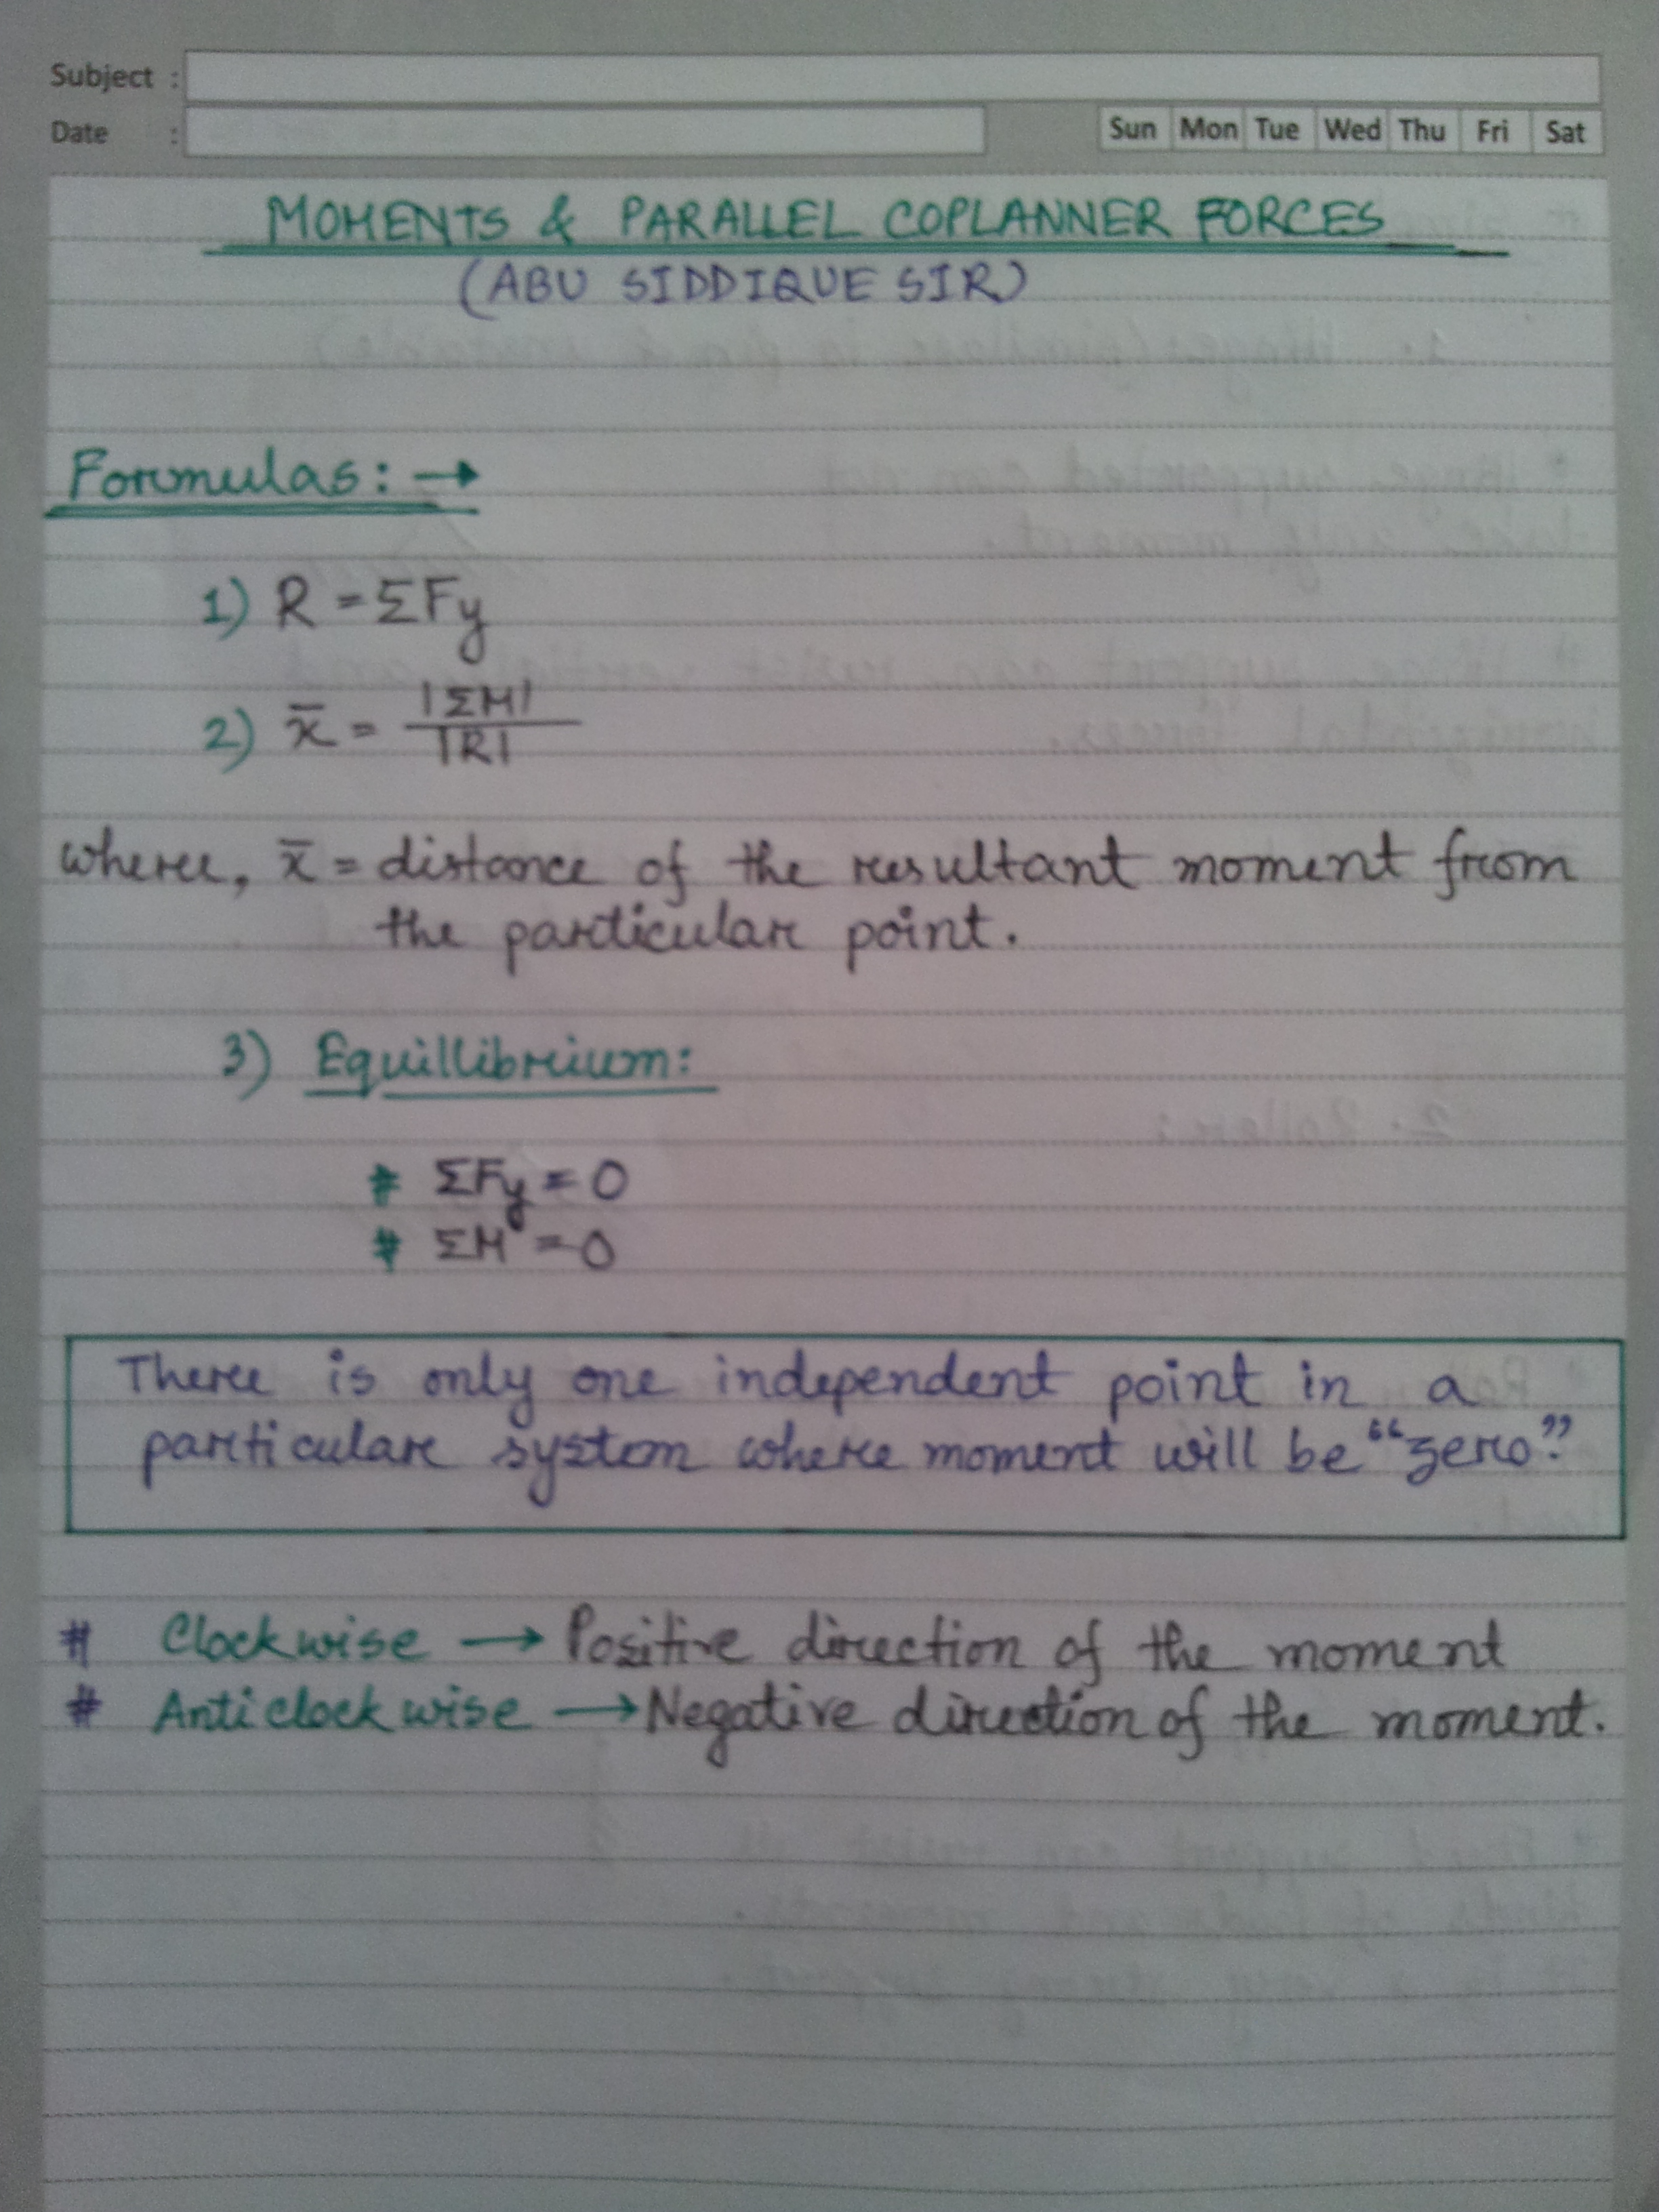 Subject :
Date :
Sun Mon Tue Wed Thu Fri Sat
MOMENTS & PARALLEL COPLANNER FORCES
(ABU SIDDIQUE SIR)
Formulas: →
1) R = ΣFy
2) x̄ = |ΣM| / |R|
where, x̄ = distance of the resultant moment from
the particular point.
3) Equillibrium:
# ΣFy = 0
# ΣM = 0
There is only one independent point in a
particular system where moment will be "zero".
# Clockwise → Positive direction of the moment
# Anticlockwise → Negative direction of the moment.